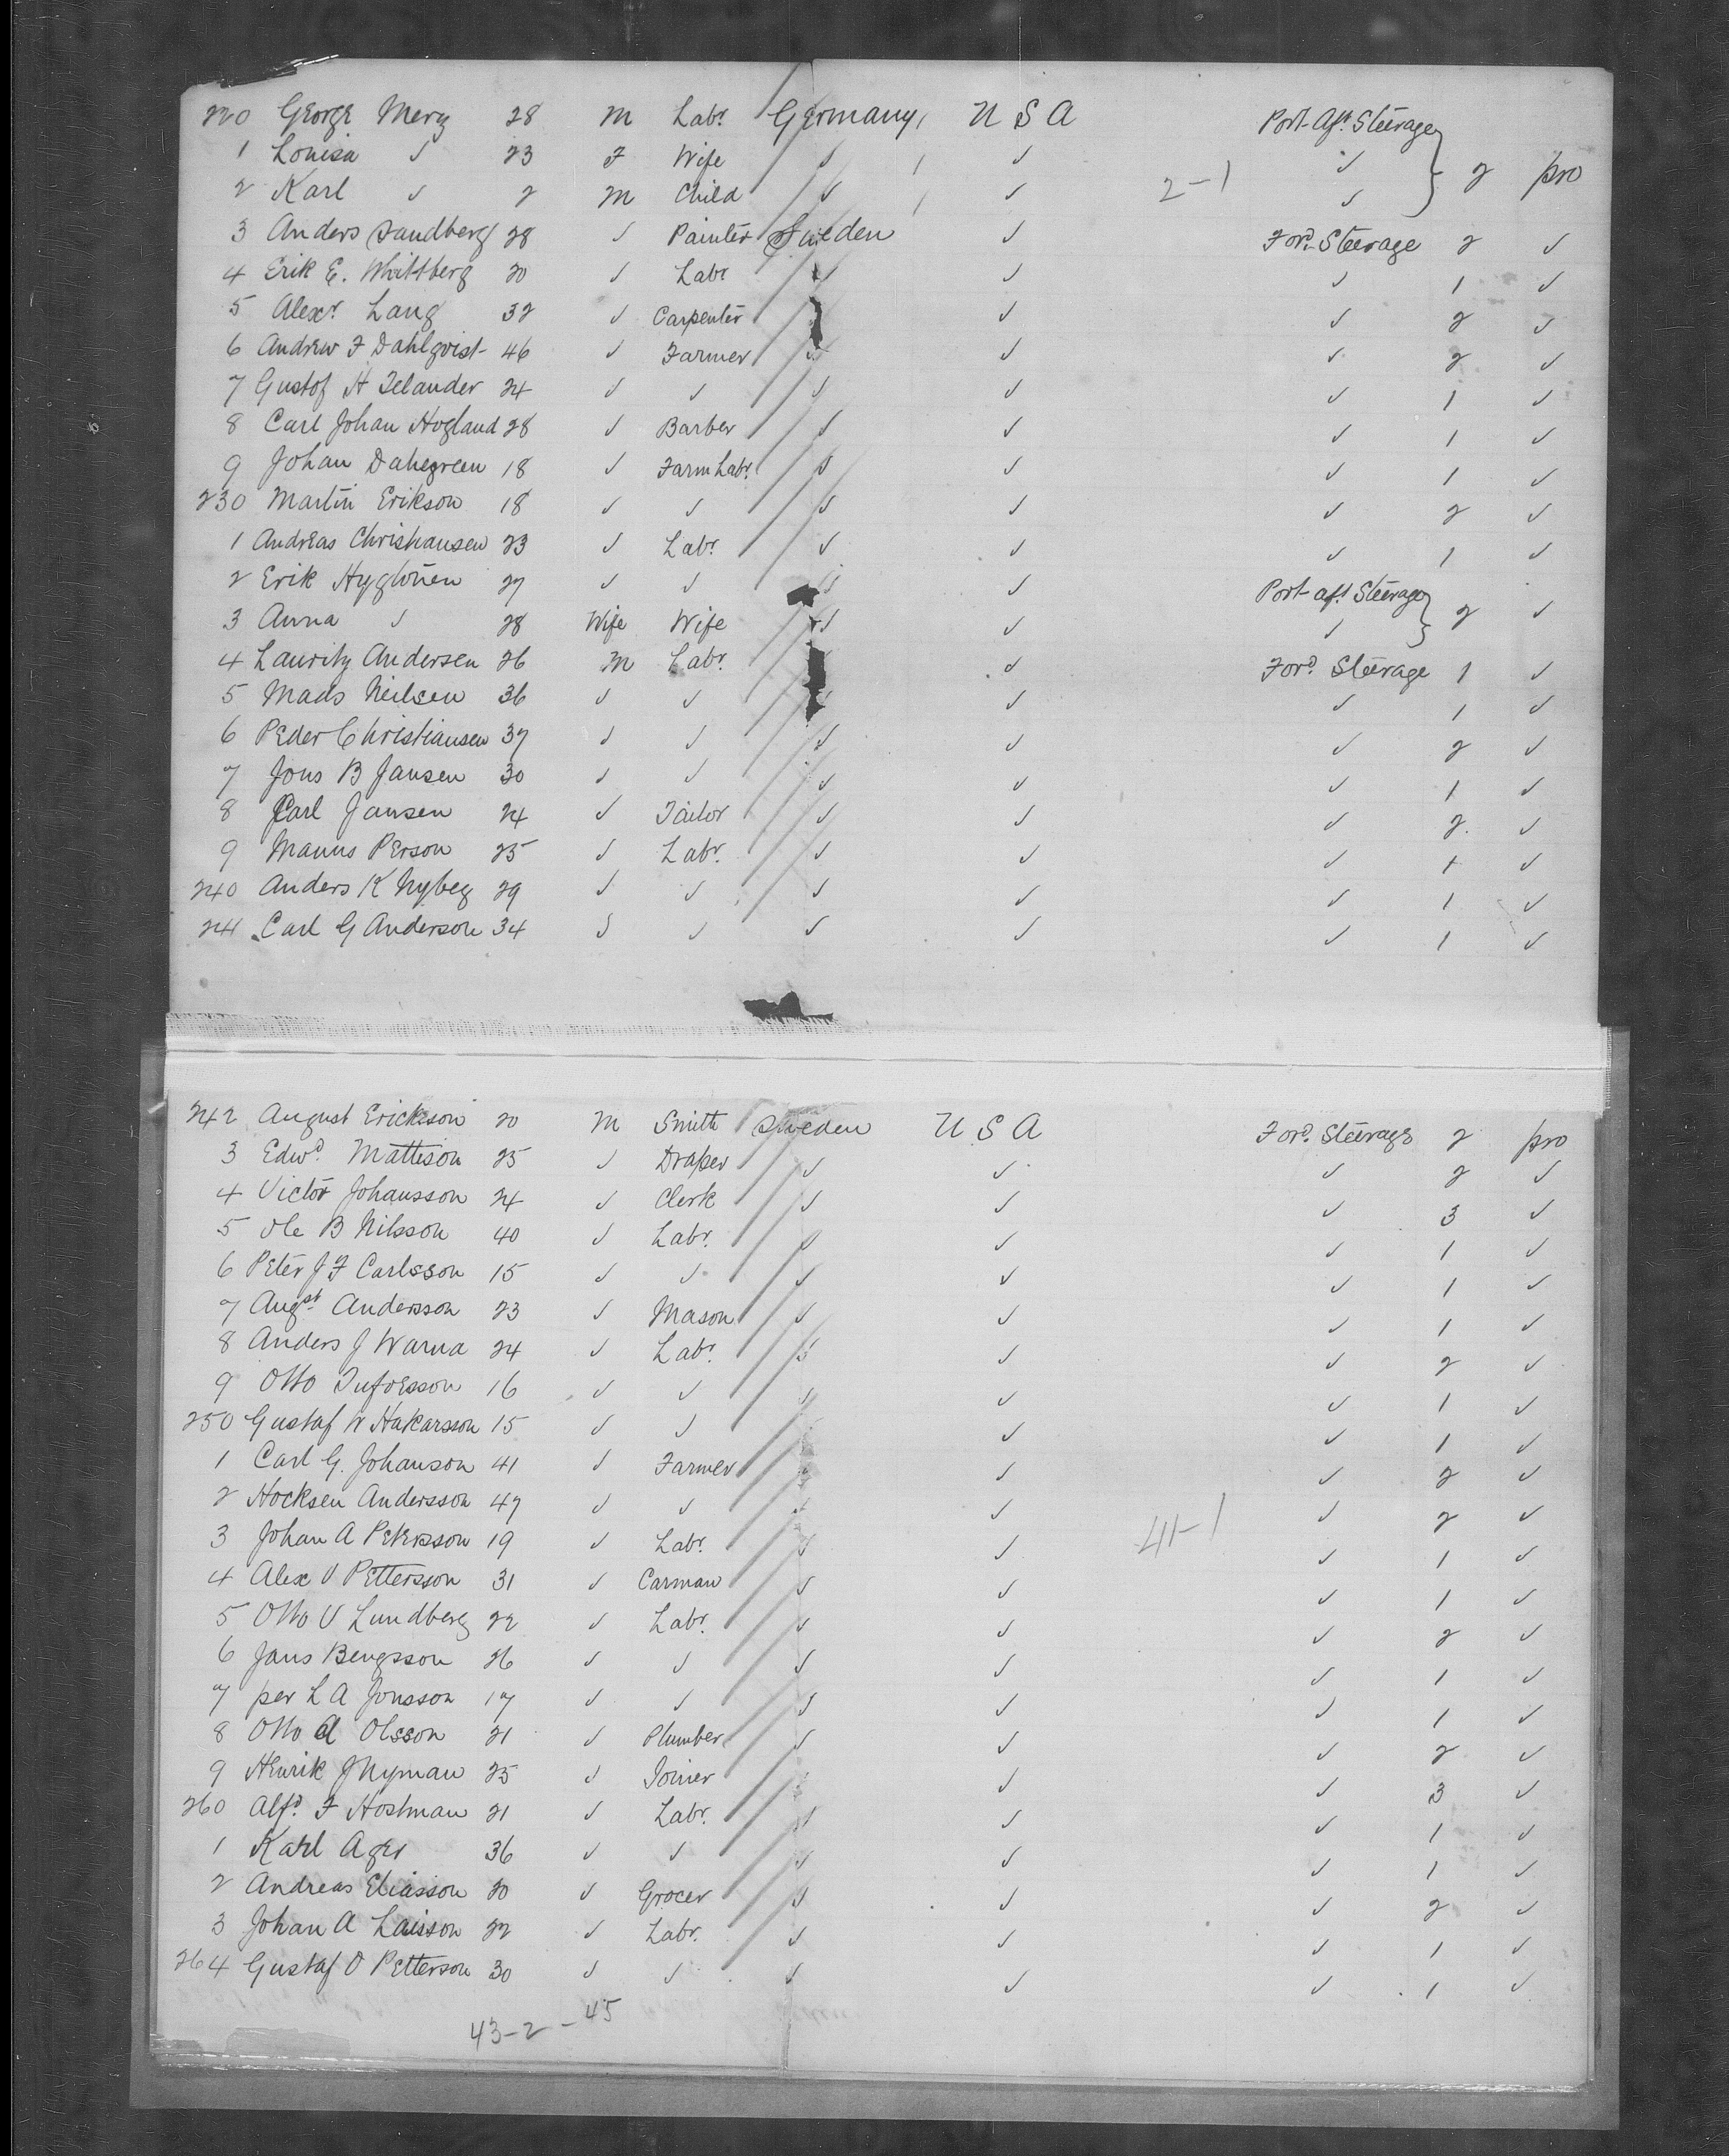 220 George Merz 28 M Labr. Germany U S A Port Aft Steerage 2 pro
1 Louisa ✓ 23 F Wife ✓ ✓ ✓
2 Karl ✓ 2 M Child ✓ ✓ 2-1 ✓
3 Anders Sandberg 28 ✓ Painter Sweden ✓ Ford. Steerage 2 ✓
4 Erik E. Whittberg 20 ✓ Labr ✓ ✓ ✓ 1 ✓
5 Alexr. Lang 32 ✓ Carpenter ✓ ✓ 2 ✓
6 Andrew F Dahlqvist 46 ✓ Farmer ✓ ✓ ✓ 2 ✓
7 Gustof H Telander 24 ✓ ✓ ✓ ✓ ✓ 1 ✓
8 Carl Johan Hogland 28 ✓ Barber ✓ ✓ ✓ 1 ✓
9 Johan Dahegreen 18 ✓ Farm Labr. ✓ ✓ ✓ 1 ✓
230 Martin Erikson 18 ✓ ✓ ✓ ✓ ✓ 2 ✓
1 Andreas Christiansen 23 ✓ Labr. ✓ ✓ ✓ 1 ✓
2 Erik 27 ✓ ✓ ✓ ✓ Port aft Steerage 2 ✓
3 Anna ✓ 28 Wife Wife ✓ ✓ ✓
4 Lauritz Andersen 26 M Labr. ✓ Ford. Steerage 1 ✓
5 Mads Neilsen 36 ✓ ✓ ✓ ✓ ✓ 1 ✓
6 Peder Christiansen 37 ✓ ✓ ✓ ✓ ✓ 2 ✓
7 Jons B Jansen 30 ✓ ✓ ✓ ✓ ✓ 1 ✓
8 Carl Jansen 24 ✓ Tailor ✓ ✓ ✓ 2 ✓
9 Manns Person 25 ✓ Labr. ✓ ✓ ✓ 1 ✓
240 Anders K Nybeg 29 ✓ ✓ ✓ ✓ ✓ 1 ✓
241 Carl G Anderson 34 ✓ ✓ ✓ ✓ ✓ 1 ✓
242 August Erickson 20 M Smith Sweden U S A Ford. Steerage 2 pro
3 Edwd. Mattison 25 ✓ Draper ✓ ✓ ✓ 2 ✓
4 Victor Johansson 24 ✓ Clerk ✓ ✓ ✓ 3 ✓
5 Ole B Nilsson 40 ✓ Labr. ✓ ✓ ✓ 1 ✓
6 Peter J F Carlsson 15 ✓ ✓ ✓ ✓ ✓ 1 ✓
7 Augst. Andersson 23 ✓ Mason ✓ ✓ ✓ 1 ✓
8 Anders J Warna 24 ✓ Labr. ✓ ✓ ✓ 2 ✓
9 Otto Tufvesson 16 ✓ ✓ ✓ ✓ ✓ 1 ✓
250 Gustaf W Hakarsson 15 ✓ ✓ ✓ ✓ 1 ✓
1 Carl G. Johanson 41 ✓ Farmer ✓ ✓ ✓ 2 ✓
2 Hocksen Andersson 47 ✓ ✓ ✓ ✓ ✓ 2 ✓
3 Johan A Petersson 19 ✓ Labr. ✓ ✓ 41-1 ✓ 1 ✓
4 Alex V Pettersson 31 ✓ Carman ✓ ✓ ✓ 1 ✓
5 Otto V Lundberg 22 ✓ Labr. ✓ ✓ ✓ 2 ✓
6 Jans Bengsson 26 ✓ ✓ ✓ ✓ ✓ 1 ✓
7 per L A Jonsson 17 ✓ ✓ ✓ ✓ ✓ 1 ✓
8 Otto A Olsson 21 ✓ Plumber ✓ ✓ ✓ 2 ✓
9 Henrik J Nyman 25 ✓ Joiner ✓ ✓ ✓ 3 ✓
260 Alfd. F Hostman 21 ✓ Labr. ✓ ✓ ✓ 1 ✓
1 Karl Ager 36 ✓ ✓ ✓ ✓ ✓ 1 ✓
2 Andreas Eliasson 20 ✓ Grocer ✓ ✓ ✓ 2 ✓
3 Johan A Laisson 22 ✓ Labr. ✓ ✓ ✓ 1 ✓
264 Gustaf O Petterson 30 ✓ ✓ ✓ ✓ ✓ 1 ✓
43-2-45